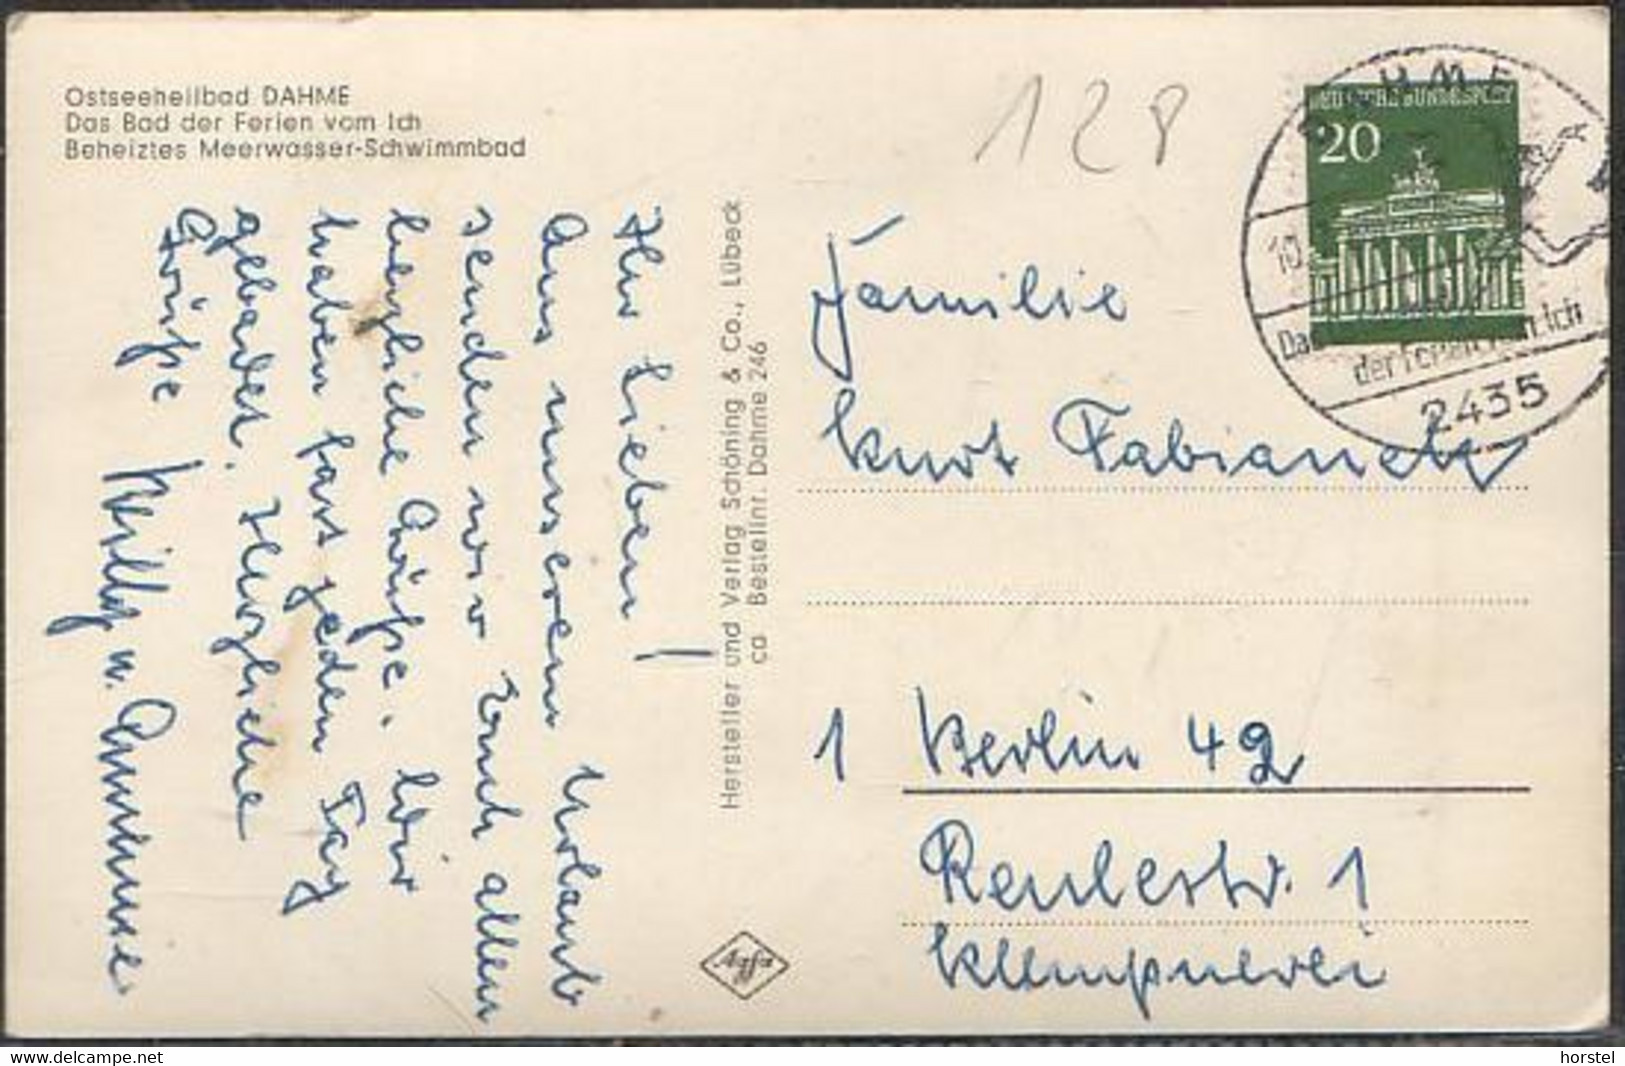 Ostseeheilbad DAHME
Das Bad der Ferien vom Ich
Beheiztes Meerwasser-Schwimmbad
Ihr Lieben!
Aus unserem Urlaub
senden wir Euch allen
herzliche Grüße. Wir
haben fast jeden Tag
gebadet. Herzliche
Grüße Willy u. Annemie
Hersteller und Verlag Schöning & Co., Lübeck
ca Bestellnr. Dahme 246
Agfa
128
DEUTSCHE BUNDESPOST
20
DAHME
10.
Das
der Ferien vom Ich
2435
Familie
Kurt Fabianek
1 Berlin 42
Reulestr. 1
Klempnerei
delcampe.net
horstel